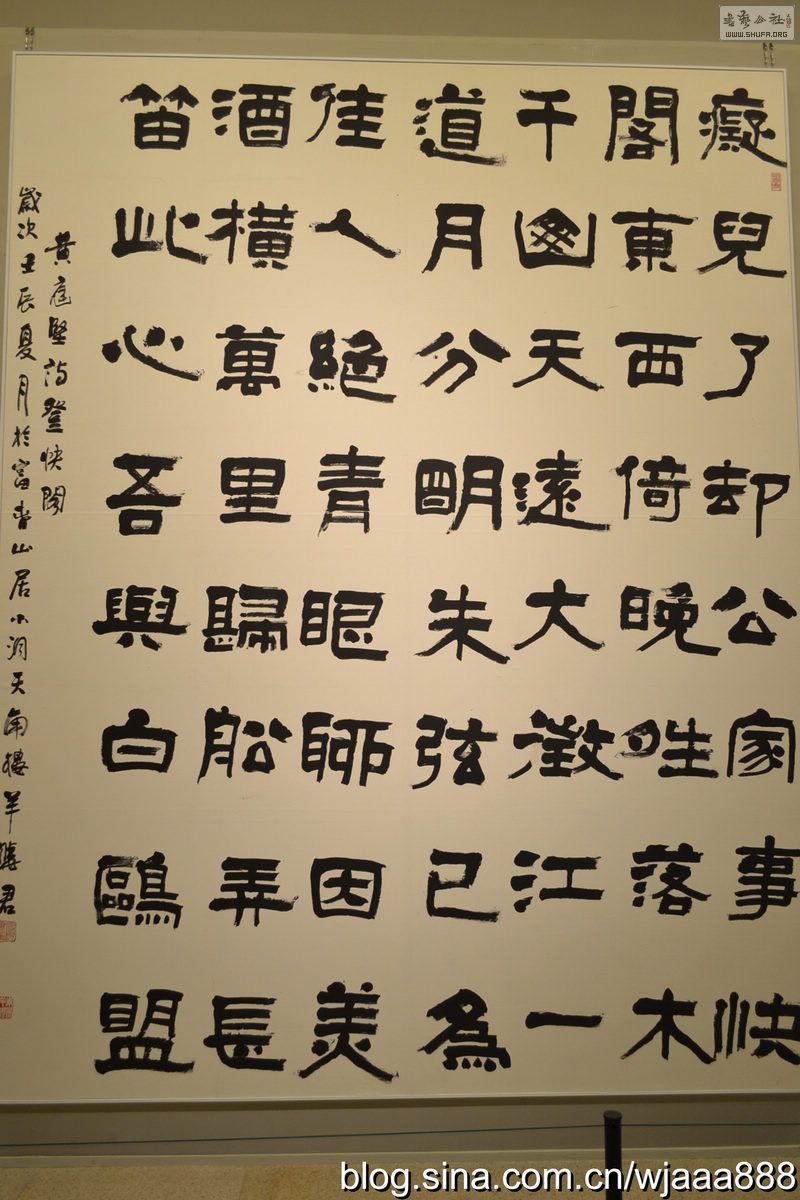 癡兒了却公家事快
閣東西倚晚夝落木
千山天遠大澂江一
道月分朙朱弦已為
佳人絕青眼聊因美
酒橫萬里歸船弄長
笛此心吾與白鷗盟
黃庭堅詩登快閣
歲次壬辰夏月於富春山居小洞天南樓羊曉君
書藝公社
WWW.SHUFA.ORG
blog.sina.com.cn/wjaaa888